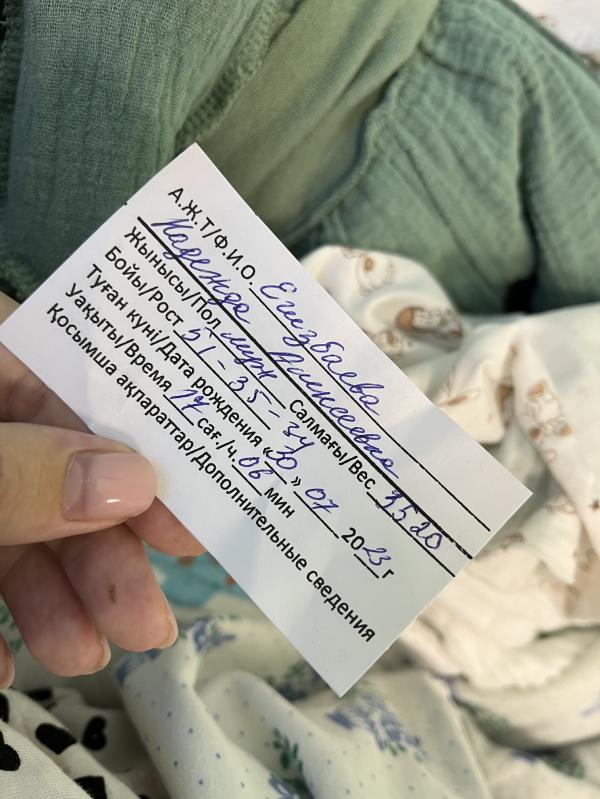 А.Ж.Т/Ф.И.О. Егизбаева
Надежда Алексеевна
Жынысы/Пол муж Салмағы/Вес 3520
Бойы/Рост 51-35-34
Туған күні/Дата рождения «30» 07 2023г
Уақыты/Время 17 сағ./ч. 06 мин
Қосымша ақпараттар/Дополнительные сведения